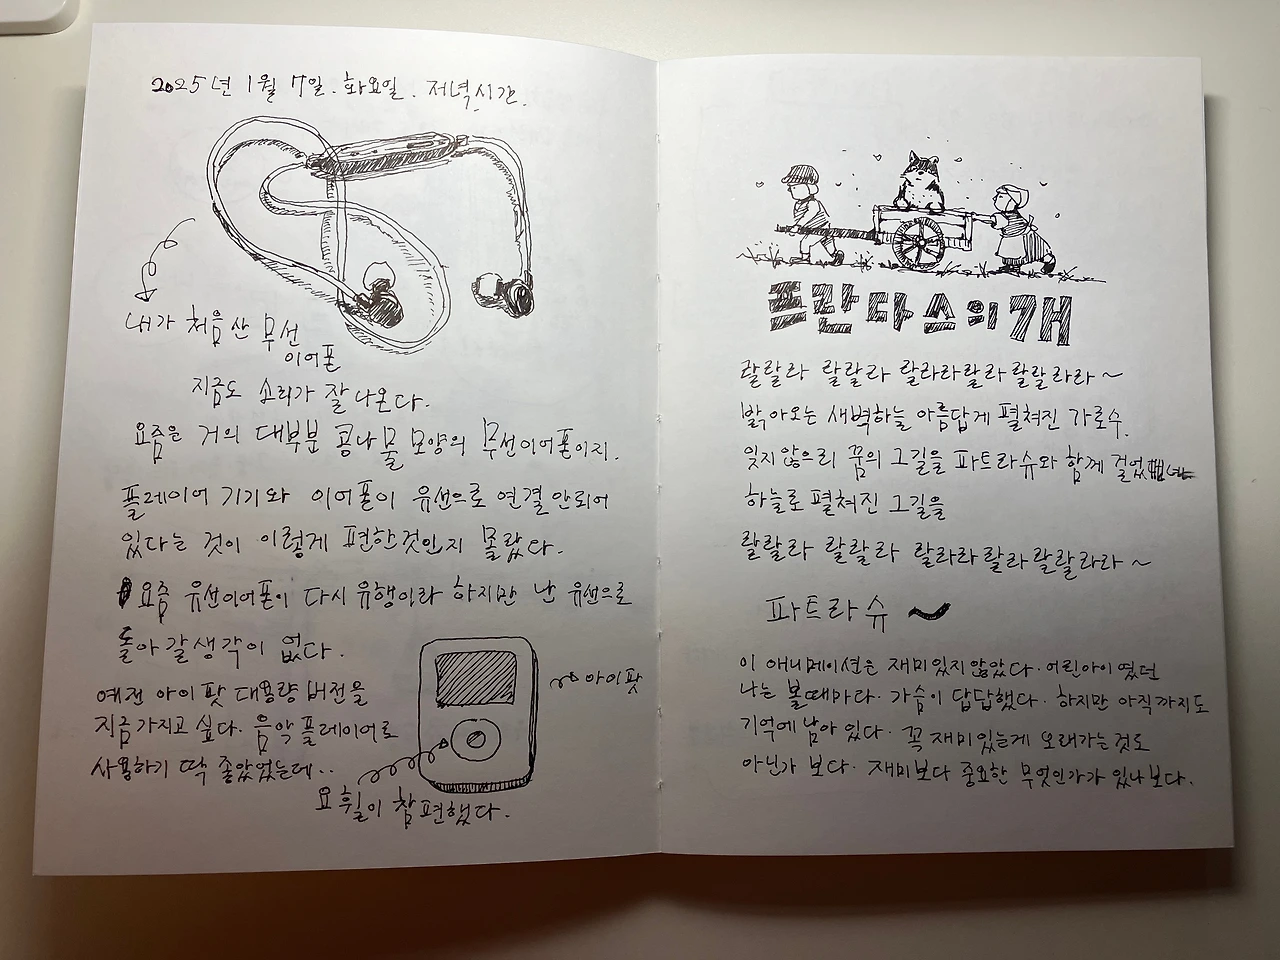 2025년 1월 7일. 화요일. 저녁시간.
내가 처음 산 무선
이어폰
지금도 소리가 잘 나온다.
요즘은 거의 대부분 콩나물 모양의 무선이어폰이지.
플레이어 기기와 이어폰이 유선으로 연결 안되어
있다는 것이 이렇게 편한것인지 몰랐다.
요즘 유선이어폰이 다시 유행이라 하지만 난 유선으로
돌아 갈 생각이 없다.
예전 아이팟 대용량 버전을
지금 가지고 싶다. 음악플레이어로
사용하기 딱 좋았었는데..
아이팟
요 휠이 참 편했다.
프란다스의 개
랄랄라 랄랄라 랄라라랄라 랄랄라라~
밝아오는 새벽하늘 아름답게 펼쳐진 가로수.
잊지않으리 꿈의 그길을 파트라슈와 함께 걸었네
하늘로 펼쳐진 그길을
랄랄라 랄랄라 랄라라랄라랄랄라라~
파트라슈~
이 애니메이션은 재미있지않았다. 어린아이였던
나는 볼때마다. 가슴이 답답했다. 하지만 아직까지도
기억에 남아 있다. 꼭 재미있는게 오래가는것도
아닌가 보다. 재미보다 중요한 무엇인가가 있나보다.